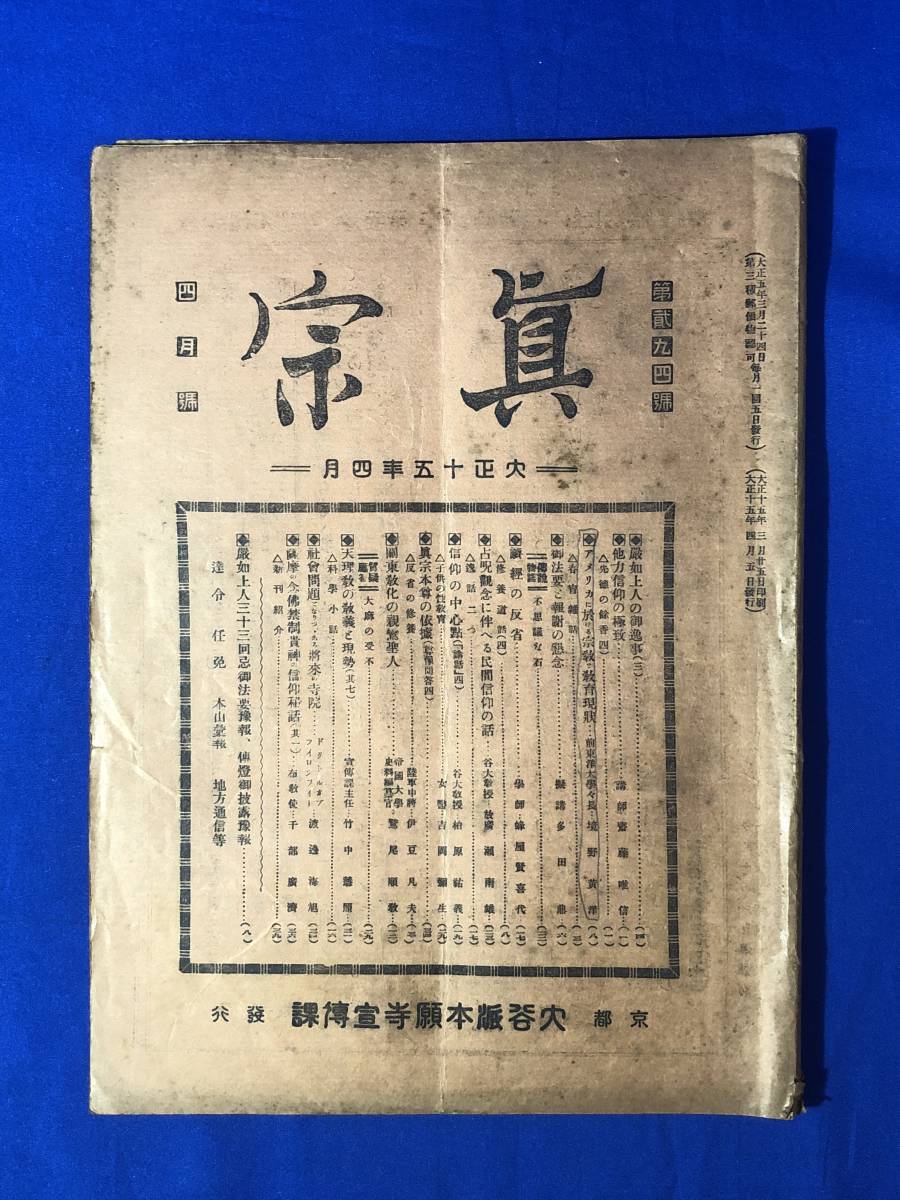 (大正五年三月二十四日
第三種郵便物認可 每月一回五日發行)
(大正十五年三月廿五日印刷
大正十五年四月五日發行)
第貳九四號
眞宗
四月號
大正十五年四月
◆嚴如上人の御逸事(三)
◆他力信仰の極致 講師 齋藤唯信
△先德の餘香(四)
◆アメリカに於ける宗敎々敎育現狀 前東洋大學々長 境野黃洋(八)
◆御法要と報謝の懇念 擬講 多田鼎(六)
不思議な石
◆讀經の反省 學師 蜂屋賢喜代
△修養道話(四)
◆占呪觀念に伴へる民間信仰の話 谷大敎授 廣瀬南雄
△逸話二つ
◆信仰の中心點(「論註」四) 谷大敎授 柏原祐義
△子供の性敎育 女醫 吉岡彌生
◆眞宗本尊の依據
△反省の修養 陸軍中將 伊豆凡夫
◆關東敎化の親鸞聖人 帝國大學史料編纂官 鷲尾順敬
大麻の受不
◆天理敎の敎義と現勢(其七) 宣傳課主任 竹中慧照
△科學小話
◆社會問題となりつゝある將來の寺院 ドクトルオブフイロソフイー 渡邊海旭
◆薩摩の念佛禁制 貴神の信仰秘話(其一) 布敎使 千部廣濟
△新刊紹介
◆嚴如上人三十三回忌御法要豫報、傳燈御披露豫報(八)
達令 任免 本山彙報 地方通信等
京都 大谷派本願寺宣傳課 發行